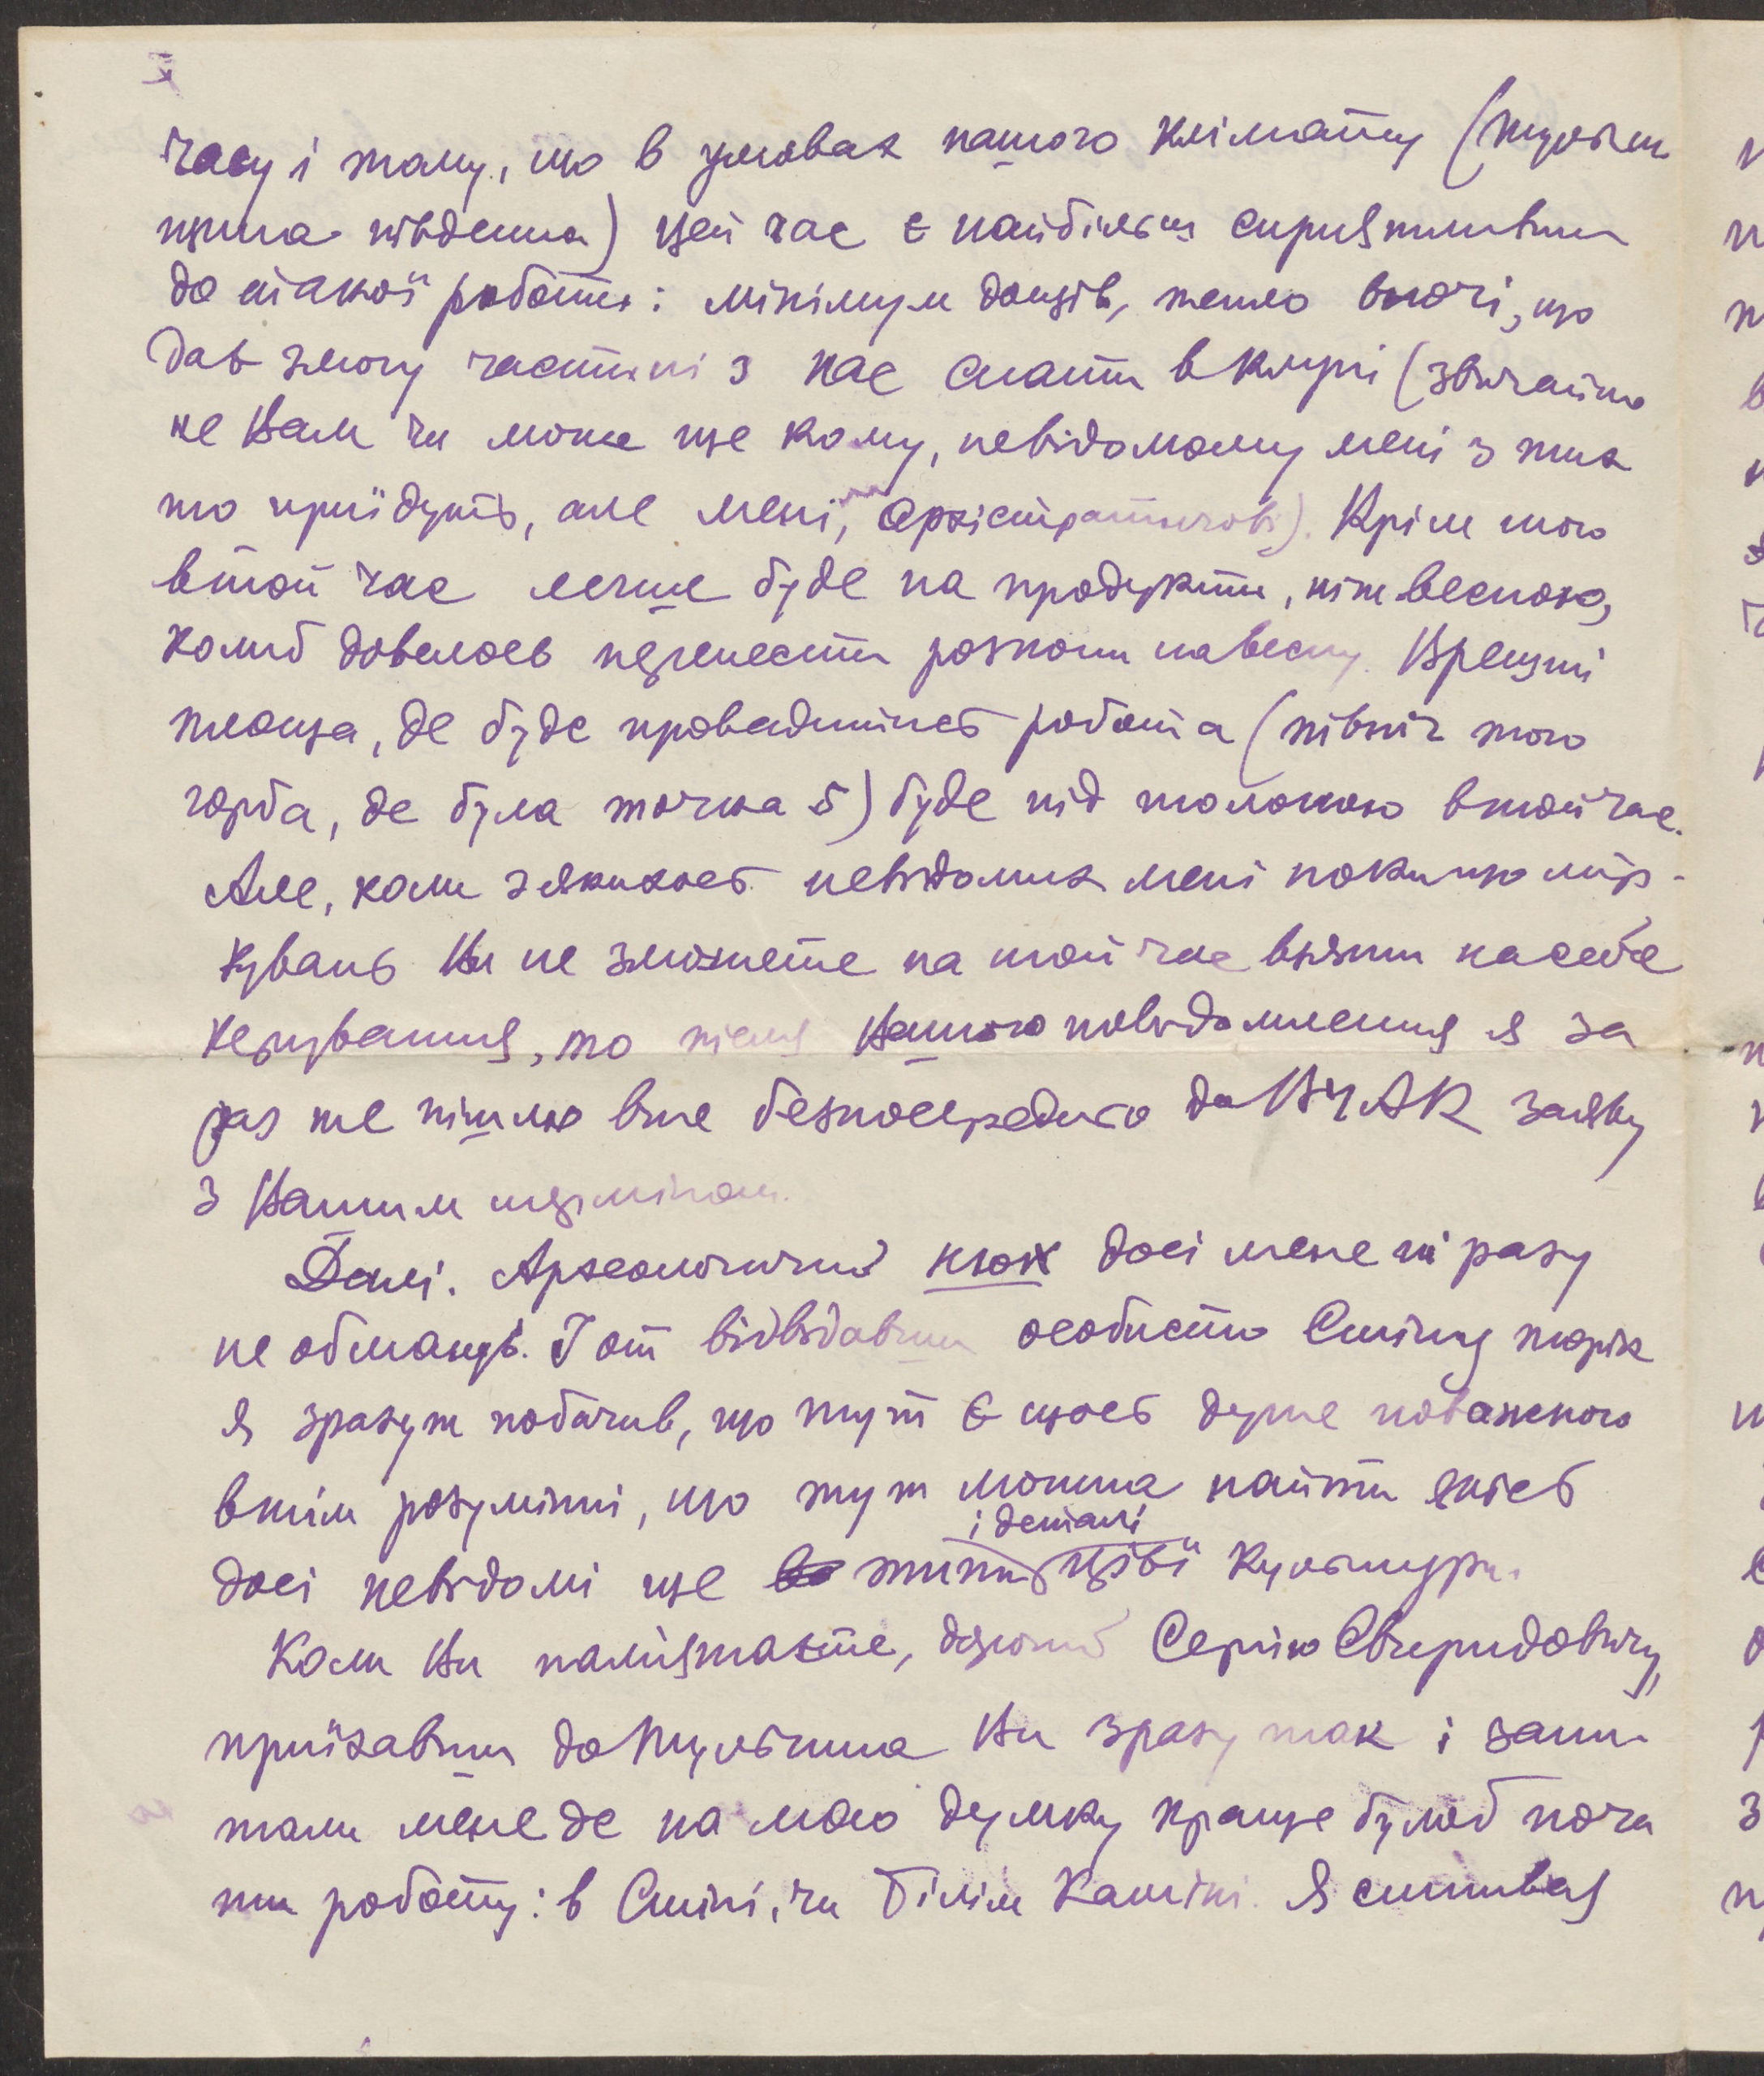 часу і тому, що в умовах нашого клімату (Тульчин
щина південна) цей час є найбільш сприятливим
до такої роботи: мінімум дощів, тепло вночі, що
дає змогу частині з нас спати в клуні (звичайно
не Вам чи може ще кому, невідомому мені з тих
хто приїдуть, але мені, Архістратигові). Крім того
в той час легше буде на продукти, ніж весною,
колиб довелось перенести розкопи на весну. Врешті
площа, де буде провадитись робота (північ того
горба, де була точка 5) буде під толокою в той час.
Але, коли з якихось невідомих мені покищо мір-
кувань Ви не зможете на той час взяти на себе
керування, то після Вашого повідомлення я за
раз же пішлю вже безпосередньо до ВУАК заявку
з Вашим терміном.
Далі. Археологичний нюх досі мене ні разу
не обманув. І от відвідавши особисто Стіну торік
я зразуж побачив, що тут є щось дуже поважного
в тім розумінні, що тут можна найти якісь
і деталі
досі невідомі ще типи цієї культури.
Коли Ви памятаєте, дорогий Сергію Свиридовичу,
приїхавши до Тульчина Ви зразу так і запи
тали мене де на мою думку краще булоб поча
ти роботу: в Стіні, чи Білім Камені. Я стояв за